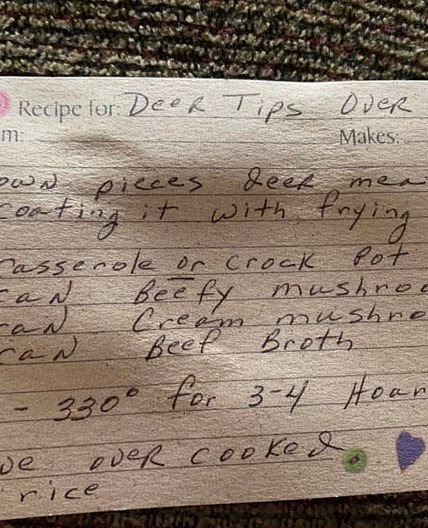 Recipe for: Deer Tips Over
m: Makes:
own pieces deer mea
coating it with frying
casserole or crock pot
can Beefy mushroo
can Cream mushro
can Beef Broth
- 330° for 3-4 Hour
ve over cooked
rice